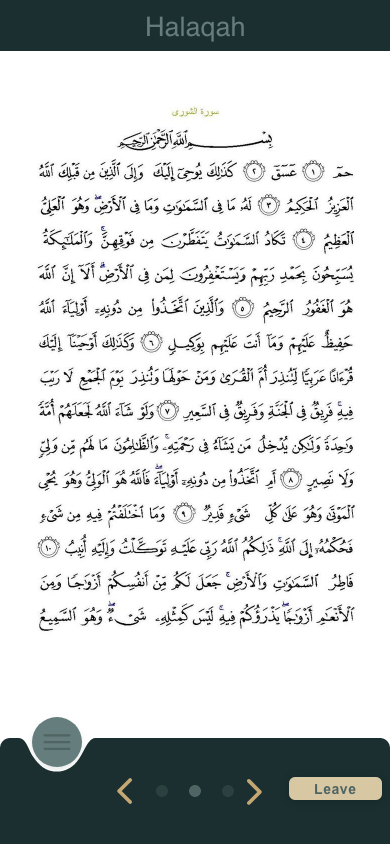 Halaqah
سورة الشورى
بِسْمِ اللَّهِ الرَّحْمَٰنِ الرَّحِيمِ
حمٓ ۝١ عٓسٓقٓ ۝٢ كَذَٰلِكَ يُوحِىٓ إِلَيْكَ وَإِلَى ٱلَّذِينَ مِن قَبْلِكَ ٱللَّهُ
ٱلْعَزِيزُ ٱلْحَكِيمُ ۝٣ لَهُۥ مَا فِى ٱلسَّمَٰوَٰتِ وَمَا فِى ٱلْأَرْضِ ۖ وَهُوَ ٱلْعَلِىُّ
ٱلْعَظِيمُ ۝٤ تَكَادُ ٱلسَّمَٰوَٰتُ يَتَفَطَّرْنَ مِن فَوْقِهِنَّ ۚ وَٱلْمَلَٰٓئِكَةُ
يُسَبِّحُونَ بِحَمْدِ رَبِّهِمْ وَيَسْتَغْفِرُونَ لِمَن فِى ٱلْأَرْضِ ۗ أَلَآ إِنَّ ٱللَّهَ
هُوَ ٱلْغَفُورُ ٱلرَّحِيمُ ۝٥ وَٱلَّذِينَ ٱتَّخَذُوا۟ مِن دُونِهِۦٓ أَوْلِيَآءَ ٱللَّهُ
حَفِيظٌ عَلَيْهِمْ وَمَآ أَنتَ عَلَيْهِم بِوَكِيلٍ ۝٦ وَكَذَٰلِكَ أَوْحَيْنَآ إِلَيْكَ
قُرْءَانًا عَرَبِيًّا لِّتُنذِرَ أُمَّ ٱلْقُرَىٰ وَمَنْ حَوْلَهَا وَتُنذِرَ يَوْمَ ٱلْجَمْعِ لَا رَيْبَ
فِيهِ ۚ فَرِيقٌ فِى ٱلْجَنَّةِ وَفَرِيقٌ فِى ٱلسَّعِيرِ ۝٧ وَلَوْ شَآءَ ٱللَّهُ لَجَعَلَهُمْ أُمَّةً
وَٰحِدَةً وَلَٰكِن يُدْخِلُ مَن يَشَآءُ فِى رَحْمَتِهِۦ ۚ وَٱلظَّٰلِمُونَ مَا لَهُم مِّن وَلِىٍّ
وَلَا نَصِيرٍ ۝٨ أَمِ ٱتَّخَذُوا۟ مِن دُونِهِۦٓ أَوْلِيَآءَ ۖ فَٱللَّهُ هُوَ ٱلْوَلِىُّ وَهُوَ يُحْىِ
ٱلْمَوْتَىٰ وَهُوَ عَلَىٰ كُلِّ شَىْءٍ قَدِيرٌ ۝٩ وَمَا ٱخْتَلَفْتُمْ فِيهِ مِن شَىْءٍ
فَحُكْمُهُۥٓ إِلَى ٱللَّهِ ۚ ذَٰلِكُمُ ٱللَّهُ رَبِّى عَلَيْهِ تَوَكَّلْتُ وَإِلَيْهِ أُنِيبُ ۝١٠
فَاطِرُ ٱلسَّمَٰوَٰتِ وَٱلْأَرْضِ ۚ جَعَلَ لَكُم مِّنْ أَنفُسِكُمْ أَزْوَٰجًا وَمِنَ
ٱلْأَنْعَٰمِ أَزْوَٰجًا ۖ يَذْرَؤُكُمْ فِيهِ ۚ لَيْسَ كَمِثْلِهِۦ شَىْءٌ ۖ وَهُوَ ٱلسَّمِيعُ
Leave